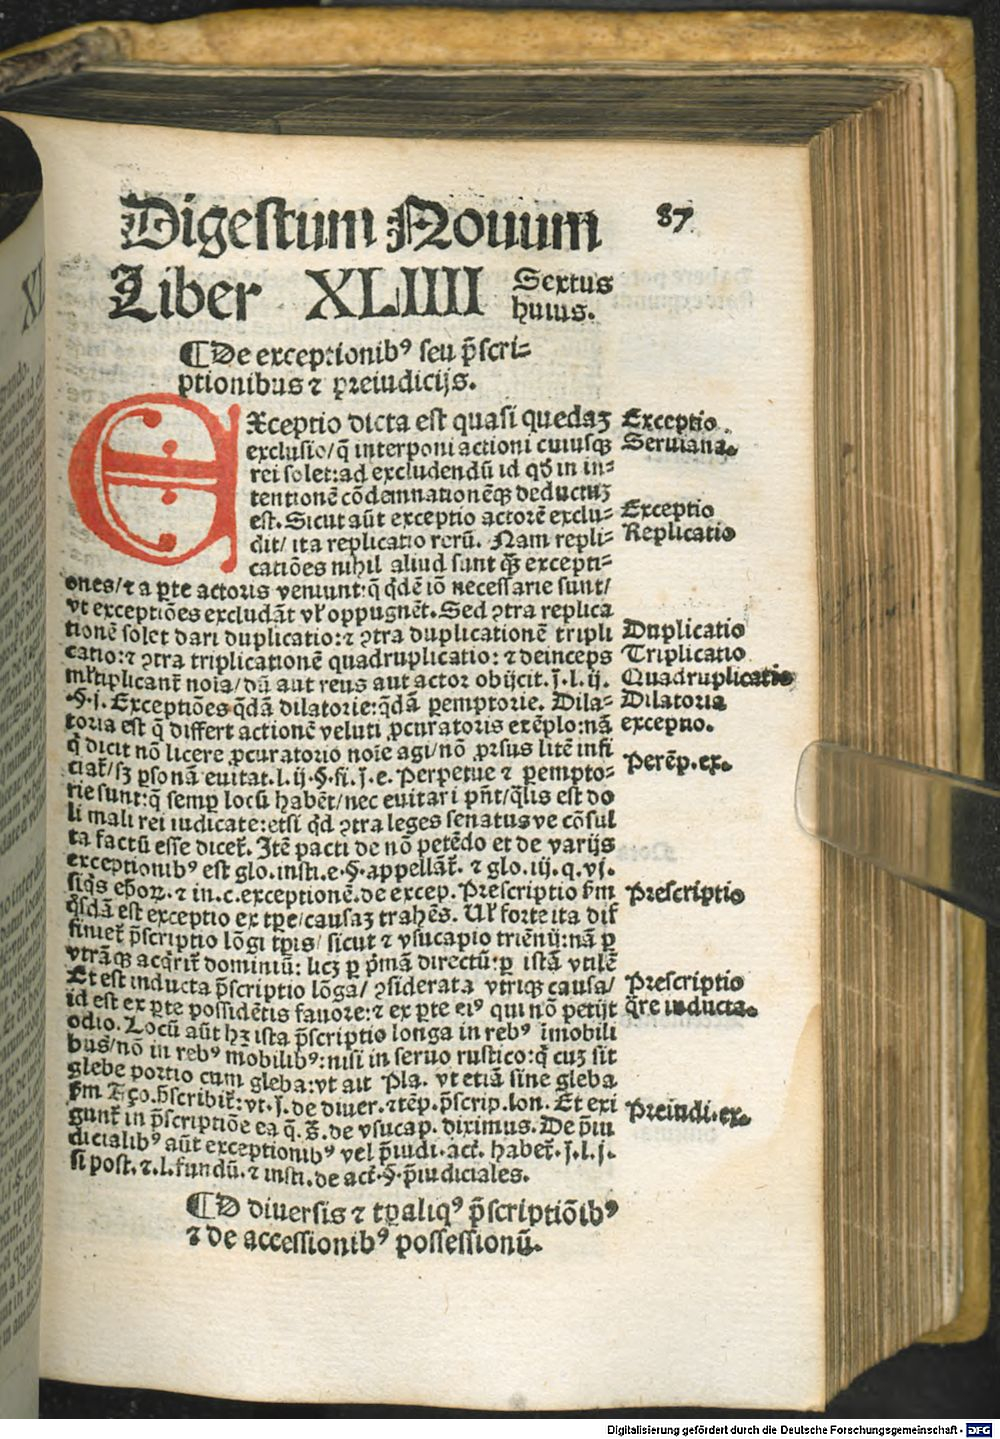 Digestum Nouum 87
Liber XLIIII Sextus
huius.
¶ De exceptionibꝰ seu p̄scri⸗
ptionibus ⁊ preiudicijs.
EXceptio dicta est quasi quedaꝫ
exclusio/q̄ interponi actioni cuiusqꝫ
rei solet:ad excludendū id qd̓ in in⸗
tentionē cōdemnationēqꝫ deductuꝫ
est. Sicut aūt exceptio actorē exclu⸗
dit/ ita replicatio reum. Nam repli⸗
catiōes nihil aliud sunt qꝫ excepti⸗
ones/⁊ a ꝑte actoris veniunt:q̄ qdē iō necessarie sunt/
vt exceptiōes excludāt vl̓ oppugnēt. Sed ꝯtra replica
tionē solet dari duplicatio:⁊ ꝯtra duplicationē tripli
catio:⁊ ꝯtra triplicationē quadruplicatio: ⁊ deinceps
ml̓tiplicant̄ noīa/dū aut reus aut actor obijcit.ſ.l.ij.
.§.j. Exceptiōes q̄dā dilatorie:q̄dā ꝑemptorie. Dila⸗
toria est q̄ differt actionē veluti ꝓcuratoris exēplo:nā
q̄ dicit nō licere ꝓcuratorio noīe agi/nō ꝓrsus litē infi
ciat̄/sꝫ ꝑsonā euitat.l.ij.§.fi.ſ.e. Perpetue ⁊ ꝑempto⸗
rie sunt:q̄ semꝑ locū habēt/nec euitari pn̄t/q̄lis est do
li mali rei iudicate:etsi qd̓ ꝯtra leges senatusve cōsul
ta factū esse dicet̄. Itē pacti de nō petēdo et de varijs
exceptionibꝰ est glo.insti.e.§.appellāt̄. ⁊ glo.iij.q.vj.
siq̄s ep̄oꝝ. ⁊ in.c.exceptionē.de excep. Prescriptio ẜm
q̄sdā est exceptio ex tꝑe/causaꝫ trahēs. Ul̓ forte ita dif
finiet̄ p̄scriptio lōgi tꝑis/ sicut ⁊ vsucapio triēnij:nā ꝑ
vtrāqꝫ acq̄rit̄ dominiū: licꝫ ꝑ p̄mā directū:ꝑ istā vtilē
Et est inducta p̄scriptio lōga/ ꝯsiderata vtriqꝫ causa/
id est ex ꝑte possidētis fauore:⁊ ex ꝑte eiꝰ qui nō petijt
odio. Locū aūt hꝫ ista p̄scriptio longa in rebꝰ īmobili
bus/nō in rebꝰ mobilibꝰ:nisi in seruo rustico:q̄ cuꝫ sit
glebe portio cum gleba:vt ait Pla. vt etiā sine gleba
ẜm p̄scribit̄:vt.ſ.de diuer.⁊tēp.p̄scrip.lon. Et exi
gunt̄ in p̄scriptiōe ea q̄. de vsucap. diximus. De p̄iu
dicialibꝰ aūt exceptionibꝰ vel p̄iudi.act̄. habet̄.ſ.l.ſ.
si post.⁊.l.fundū.⁊ insti.de act̄.§.p̄iudiciales.
¶ D diuersis ⁊ tꝑaliqꝰ p̄scriptiōibꝰ
⁊ de accessionibꝰ possessionū.
Exceptio
Seruiana.
Exceptio
Replicatio
Duplicatio
Triplicatio
Quadruplicatio
Dilatoria
exceptio.
Perēp.ex.
Prescriptio
Prescriptio
q̄re inducta.
Preiudi.ex.
Digitalisierung gefördert durch die Deutsche Forschungsgemeinschaft - DFG